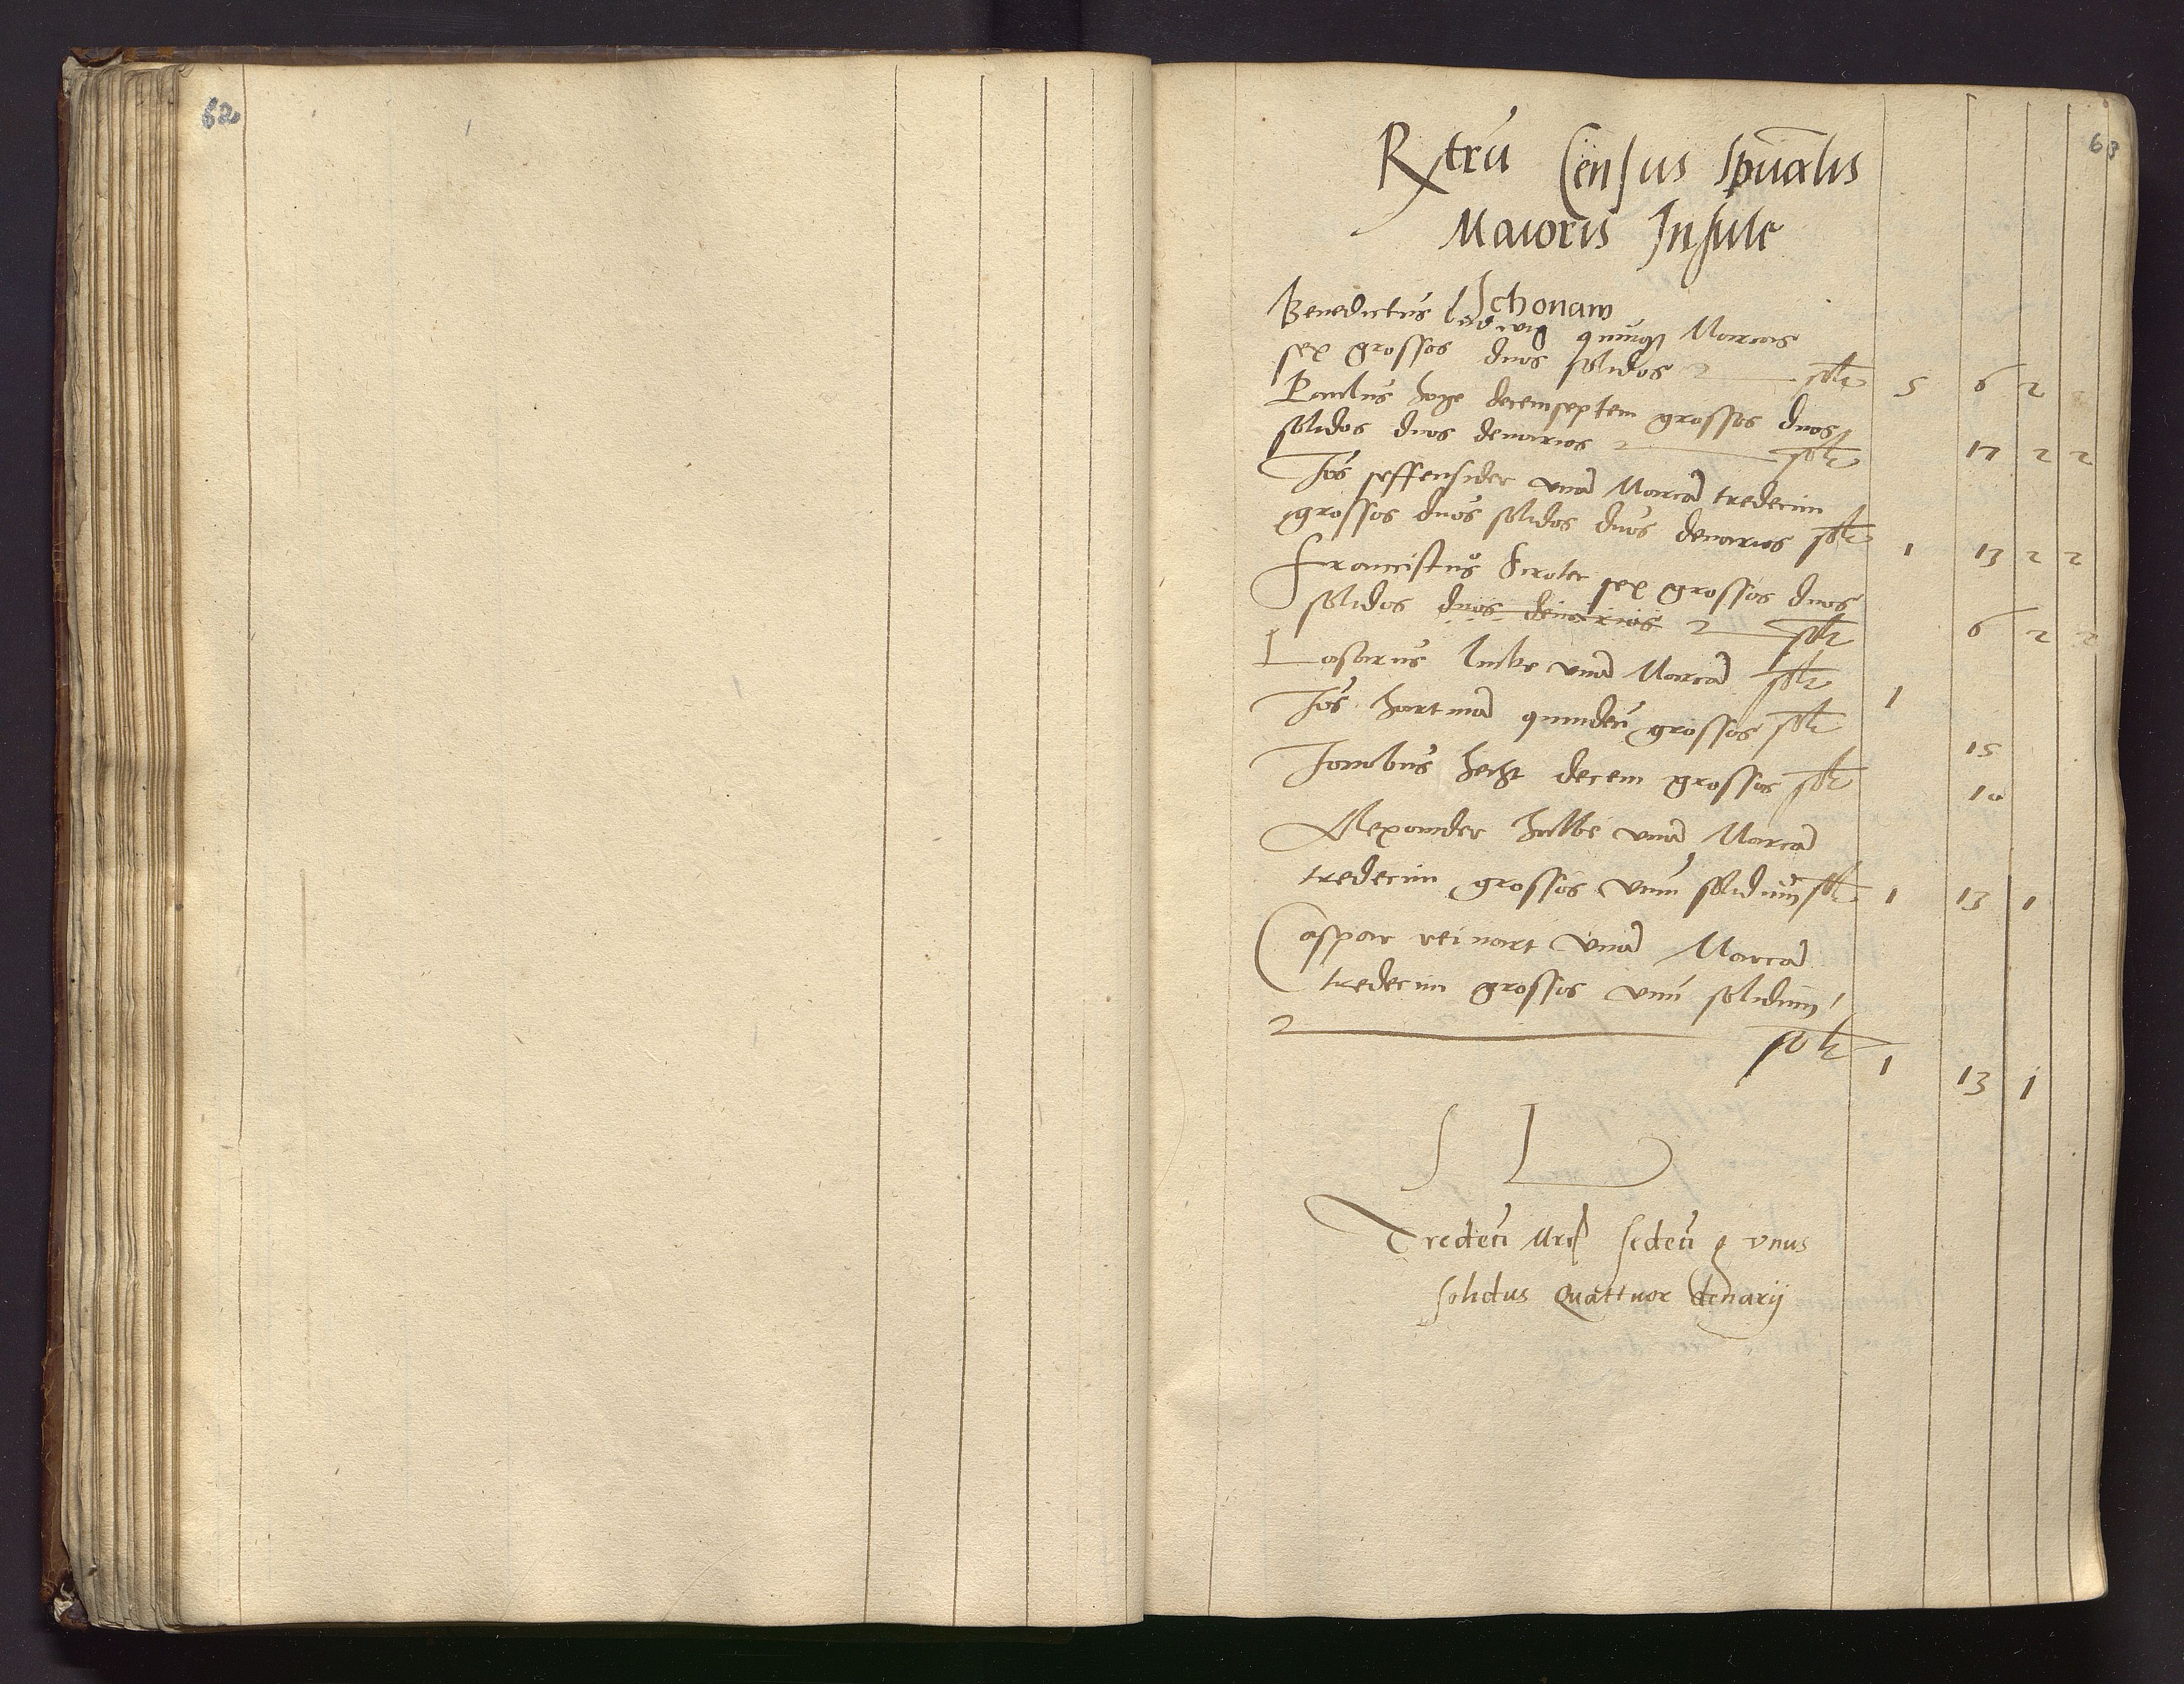 62
63
Rxtrũ Census Spũalis
Maioris Insule
Schonaw
Benedictus Ludwig quinqȝ Marcas
sex grossos duos solidos solt 5 6 2
Paulus hoge decemseptem grossos duos
solidos duos denarios solt 17 2 2
Jos seffensider vnã Marcã tredecim
grossos duos solidos duos denarios solt 1 13 2 2
Franciscus sex grossos duos
solidos duos denarios solt 6 2 2
Lasarus lucke vnã Marcã solt 1
Jos hartmã quindecĩ grossos solt 15
Jacobus hecht decem grossos solt 10
Alexander hulbe vnã Marcã
tredecim grossos vnũ solidum solt 1 13 1
Caspar reinart vnã Marcã
tredecim grossos vnũ solidum
solt 1 13 1
S L
Tredecĩ Mrc sedecĩ g vnus
solidus Quattuor denarij